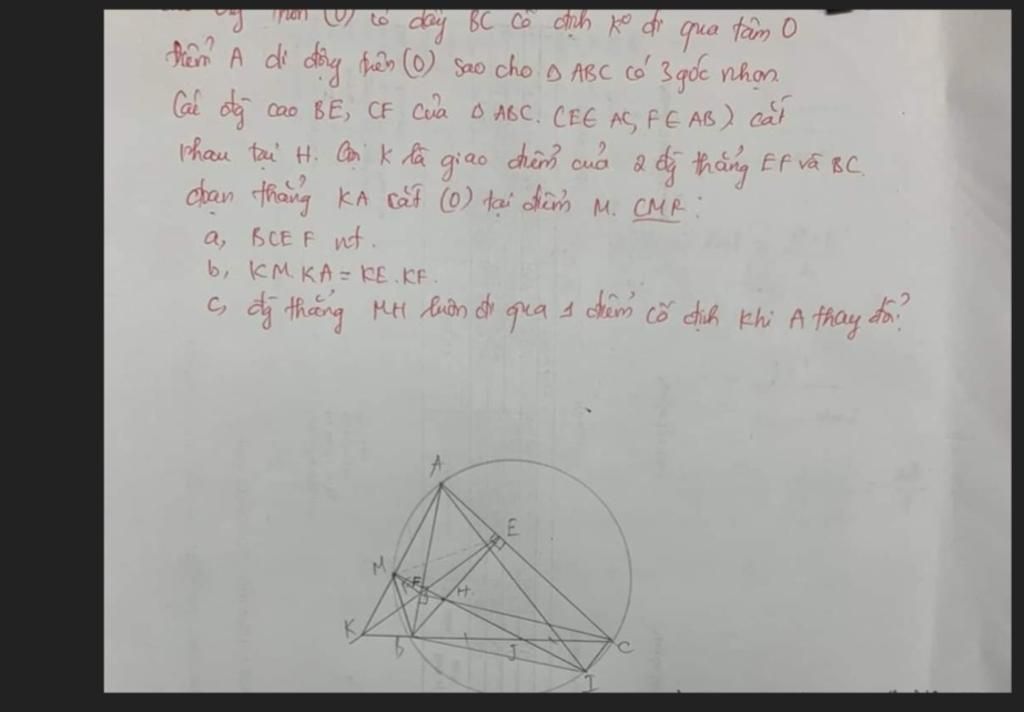 tròn (O) có dây BC cố định kº đi qua tâm O
điểm A di động trên (O) sao cho Δ ABC có 3 góc nhọn
Các đg cao BE, CF của Δ ABC. (E ∈ AC, F ∈ AB) cắt
nhau tại H. Gọi K là giao điểm của 2 đg thẳng EF và BC.
đoạn thẳng KA cắt (O) tại điểm M. CMR:
a, BCEF nt.
b, KM.KA = KE.KF.
c, đg thẳng MH luôn đi qua 1 điểm cố định khi A thay đổi?
A
E
M
F
H
K
b
J
C
I